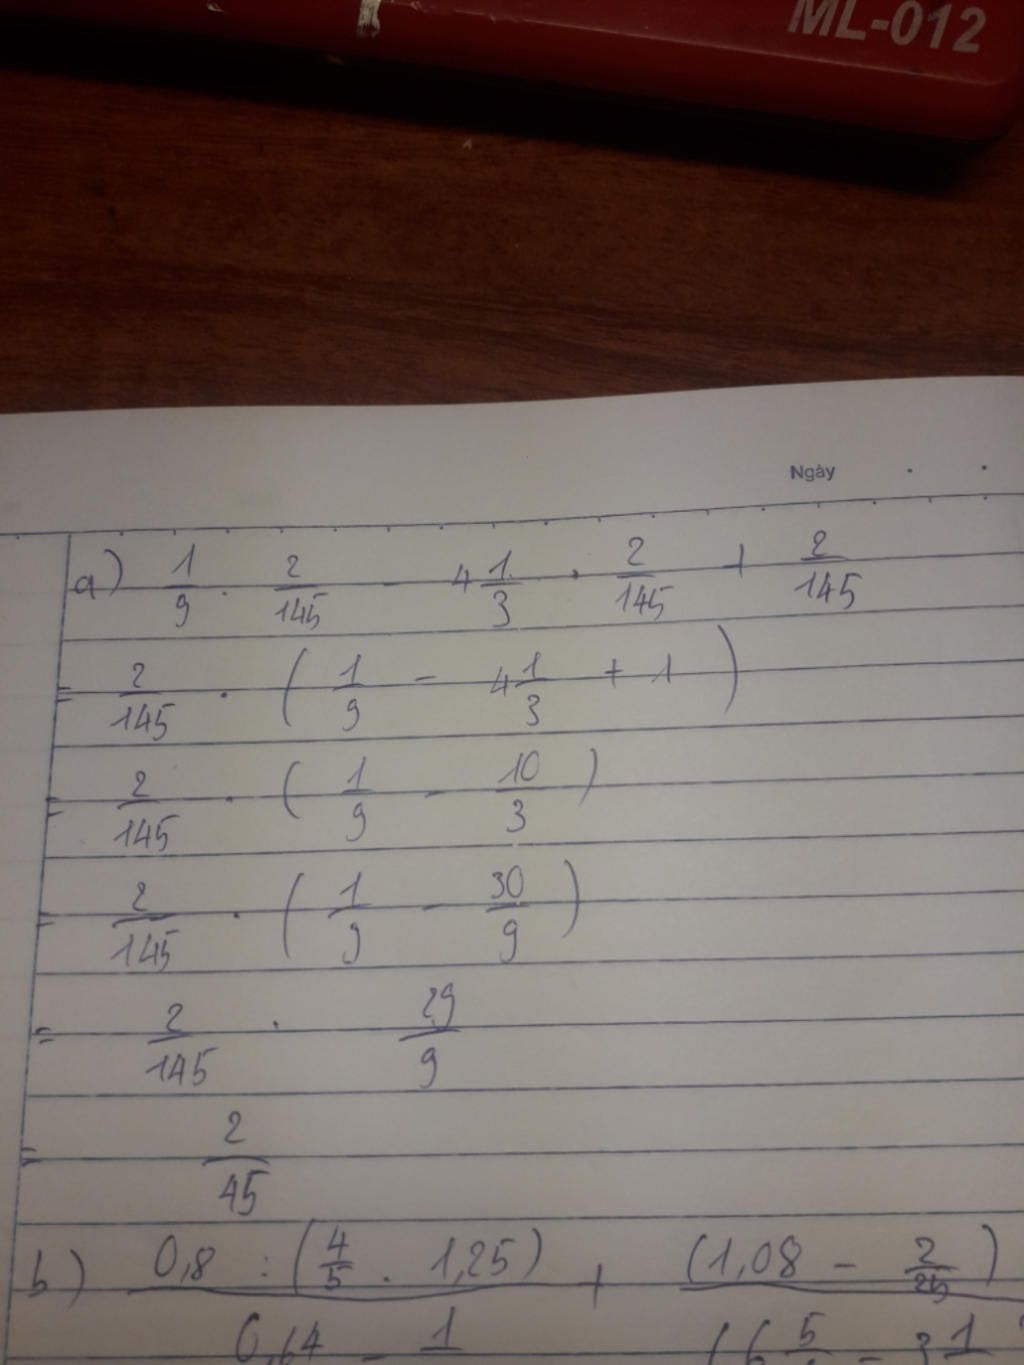 ML-012
Ngày
a) 1/9 . 2/145 - 4 1/3 . 2/145 + 2/145
= 2/145 . ( 1/9 - 4 1/3 + 1 )
= 2/145 . ( 1/9 - 10/3 )
= 2/145 . ( 1/9 - 30/9 )
= 2/145 . 29/9
= 2/45
b) 0,8 : ( 4/5 . 1,25 ) + (1,08 - 2/25 )
0,64 - 1 (6 5 - 3 1